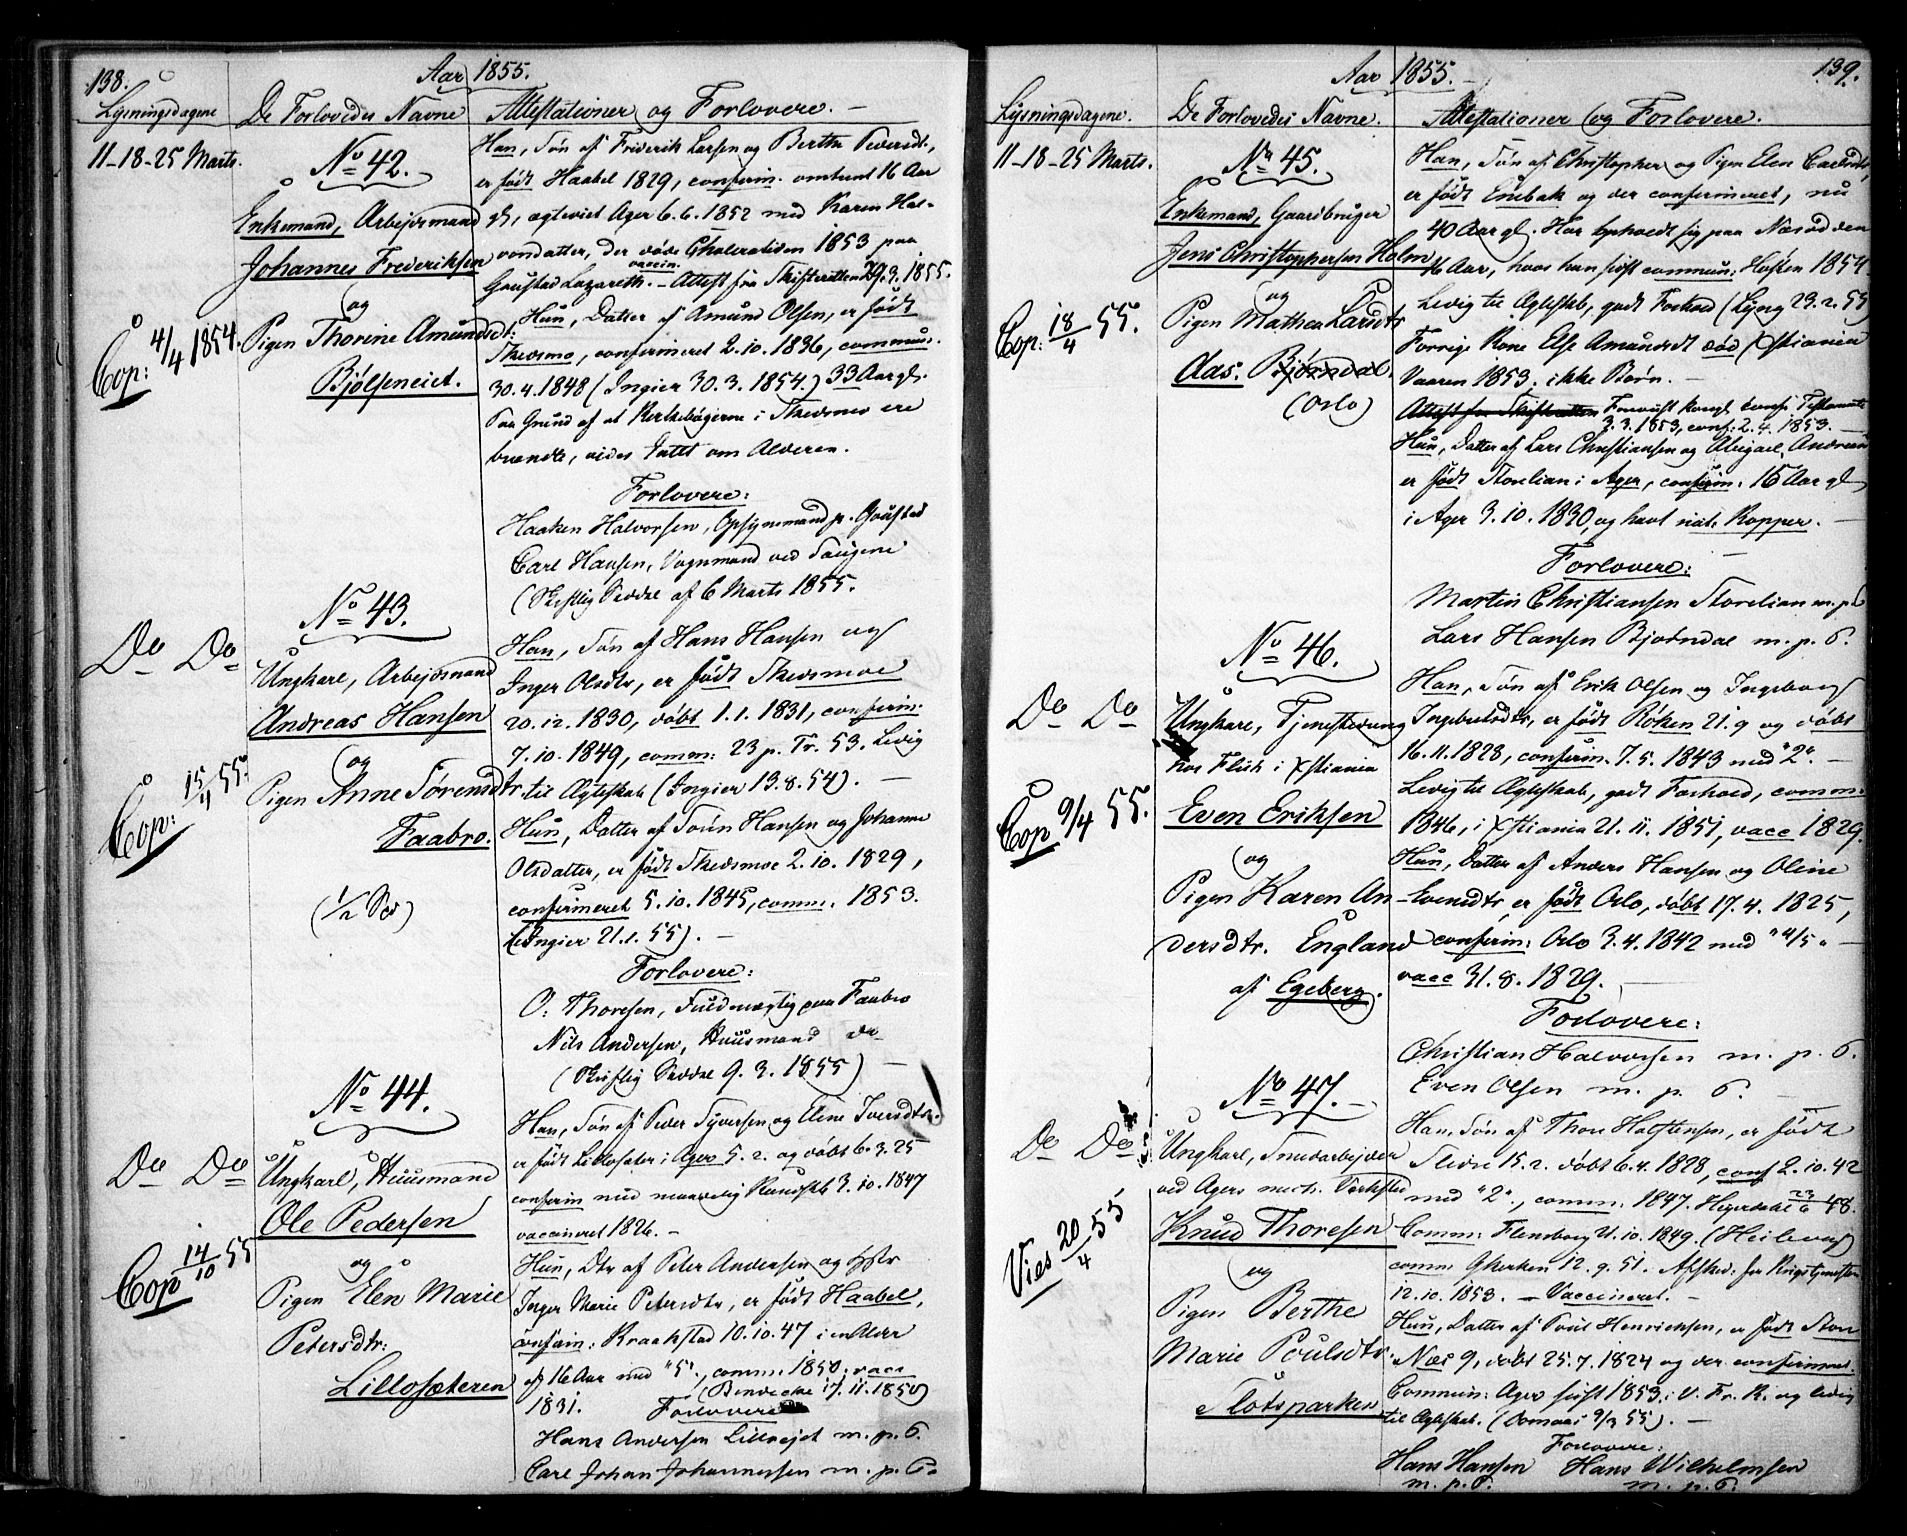 138.
Aar 1855.
Lysningsdagene
De Forlovedes Navne
Attestationer og Forlovere. –
11-18-25 Marts.
No 42.
Enkemand, Arbejdsmand
Johannes Frederiksen
og
Pigen Thorine Amundsdt:
Bjølseneiet.
Cop: 4/4 1854.
Han, Søn af Friderik Larsen og Berthe Pedersdt.,
er født Haabel 1829, confirm. omtrent 16 Aar
gl., ægteviet Ager 6.6.1852 med Karen Hal-
vorsdatter, der døde Choleratiden 1853 paa
vaccin.
Goustad Lazareth. – Attest fra Skifteretten 29.3.1855.
Hun, Datter af Amund Olsen, er født
Skedsmo, confirmeret 2.10.1836, commun.
30.4.1848 (Ingier 30.3.1854.) 33 Aar gl.
Paa Grund af at Kirkebøgerne i Skedsmo ere
brændte, vides Intet om Alderen.
Forlovere:
Haaken Halvorsen, Opsynsmand p. Goustad
Carl Hansen, Vognmand ved Saugene
(Skriftlig Seddel af 6 Marts 1855.
Do Do
No 43.
Ungkarl, Arbejdsmand
Andreas Hansen
og
Pigen Anne Sørensdtr.
Faabro.
(1/2 Sp)
Cop: 15/4 55.
Han, Søn af Hans Hansen og
Inger Olsdtr, er født Skedsmoe
20.12.1830, døbt 1.1.1831, confirm.
7.10.1849, comm: 23 p. Tr. 53. Ledig
til Ægteskab (Ingier 13.8.54). –
Hun, Datter af Sørn Hansen og Johanne
Olsdatter, er født Skedsmoe 2.10.1829,
confirmeret 5.10.1845, comm. 1853.
(Ingier 21.1.55). –
Forlovere:
O. Thoresen, Fuldmægtig paa Faabro
Nils Andersen, Huusmand do
(Skriftlig Seddel 9.3.1855) –
Do Do
No 44.
Ungkarl, Huusmand
Ole Pedersen
og
Pigen Elen Marie
Petersdtr:
Lillosæteren
Cop 14/10 55
Han, Søn af Peder Syversen og Eline Iversdtr.
er født Lillosæter i Ager 5.2. og døbt 6.3.25
confirm med maadelig Kundskb 3.10.1847
vaccineret 1826. –
Hun, Dtr af Peter Andersen og Hstr
Inger Marie Petersdtr, er født Haabel,
confirm: Kraakstad 10.10.47 i en Alder
af 16 Aar med "5"., comm: 1850. vacc
(Bendeke 17.11.1850)
1831. Forlovere
Hans Andersen Lillevejet m.p.P.
Carl Johan Johannessen m.p.P.
139.
Aar 1855.
Lysningsdagene.
De Forlovedes Navne.
Attestationer og Forlovere.
11-18-25 Marts.
No 45.
Enkemand, Gaardbruger
Jens Christophersen Holm
og
Pigen Mathea Larsdtr
Aas. Bjørndal.
(Oslo)
Cop: 18/4 55.
Han, Søn af Christopher og Pigen Elen
er født Enebak og der confirmeret, nu
40 Aar gl. Har opholdt sig paa Næsodden
16 Aar, hvor han sidst commun: Høsten 1854.
Ledig til Ægteskb, godt Forhold (Lyng 23.2.55)
Forrige Kone Else Amundsdt død Xstiania
Vaaren 1853. ikke Børn. –
Attest fra Skifteretten Forevist Kongl. conf. Testamente
3.3.1853, conf: 2.4.1853. –
Hun, Datter af Lars Christiansen og Abigael Andreasd
er født Storelian i Ager, confirm. 16 Aar gl
i Ager 3.10.1830, og havt nat. Kopper. –
Forlovere:
Martin Christiansen Storelian m.p.P
Lars Hansen Bjørndal m.p.P.
Do Do
No 46.
Ungkarl, Tjenestedreng
hos Flisk i Xstiania
Even Eriksen
og
Pigen Karen An-
dersdtr. England
af Egeberg.
Cop 9/4 55.
Han, Søn af Erik Olsen og Ingeborg
Ingebretsdtr, er født Røken 21.9 og døbt
16.11.1828, confirm. 7.5.1843 med "2". –
Ledig til Ægteskab, godt Forhold, comm.
1846, i Xstiania 21.11.1851, vacc 1829.
Hun, Datter af Anders Hansen og Oline
Evensdtr, er født Oslo, døbt 17.4.1825,
confirm: Oslo 3.4.1842 med "4/5" –
vacc 31.8.1829. –
Forlovere:
Christian Halvorsen m.p.P.
Even Olsen m.p.P.
Do Do
No 47.
Ungkarl, Smedarbejder
ved Agers mech. Værksted
Knud Thoresen
og
Pigen Berthe
Marie Poulsdtr.
Slotsparken
Vies 20/4 55
Han, Søn af Thore Halstensen, er født
Slidre 15.2. døbt 6.4.1828, conf 2.10.42
med "2"., comm. 1847. Hegerdahl 23/6 48.
Comm: Flensborg 21.10.1849. (Heiberg)
comm Gkerken 12.9.51. Afsked: for Krigstjenesten
12.10.1853. – Vaccineret. –
Hun, Datter af Poul Henriksen, er født Stor
Næs 9, døbt 25.7.1824 og der confirmeret.
Commun: Ager sidst 1853. i V. Fr. K. og ledig
til Ægteskb. (Domaas 9/3 55). –
Forlovere:
Hans Hansen Hans Wilhelmsen
m.p.P. m.p.P.